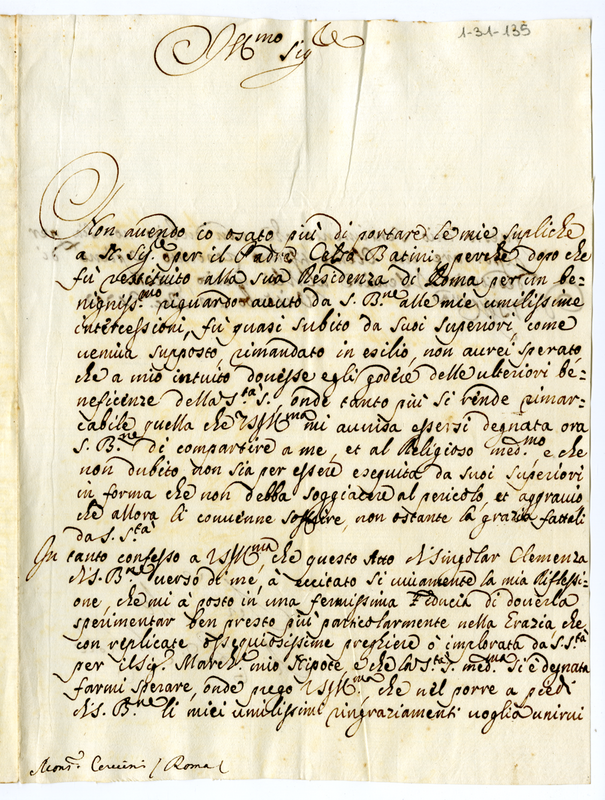 1-31-135
Ill.mo Sig.re
Non avendo io osato più di portare le mie supliche
a N. Sig.re per il Padre Celso Batini, perchè dopo che
fù restituito alla sua Residenza di Roma per un be=
nigniss.mo riguardo avuto da S. B.ne alle mie umilissime
intercessioni, fù quasi subito da suoi Superiori, come
veniva supposto, rimandato in esilio, non aurei sperato,
che a mio intuito dovesse egli godere delle ulteriori be=
neficenze della S.tà S. onde tanto più si rende rimar=
cabile quella che VSIll.ma mi avvisa essersi degnata ora
S. B.ne di compartire a me, et al Religioso med.mo, e che
non dubito non sia per essere eseguita da suoi Superiori
in forma che non debba soggiacere al pericolo, et aggravio
che allora li convenne soffrire, non ostante la grazia fattali
da S. S.tà
In tanto confesso a VSIll.ma che questo Atto di singolar Clemenza
di S. B.ne verso di me, à eccitato sì vivamente la mia Riflessi=
one, che mi à posto in una fermissima Fiducia di doverla
sperimentar ben presto più particolarmente nella Grazia, che
con replicate ossequiosissime preghiere ò implorata da S. S.tà
per il Sig.r March. mio Nipote, e che la S.tà S. med.ma si è degnata
farmi sperare, onde prego VSIll.ma che nel porre a piedi
di S. B.ne li miei umilissimi ringraziamenti voglia unirui
Mons.r Cervini / Roma /